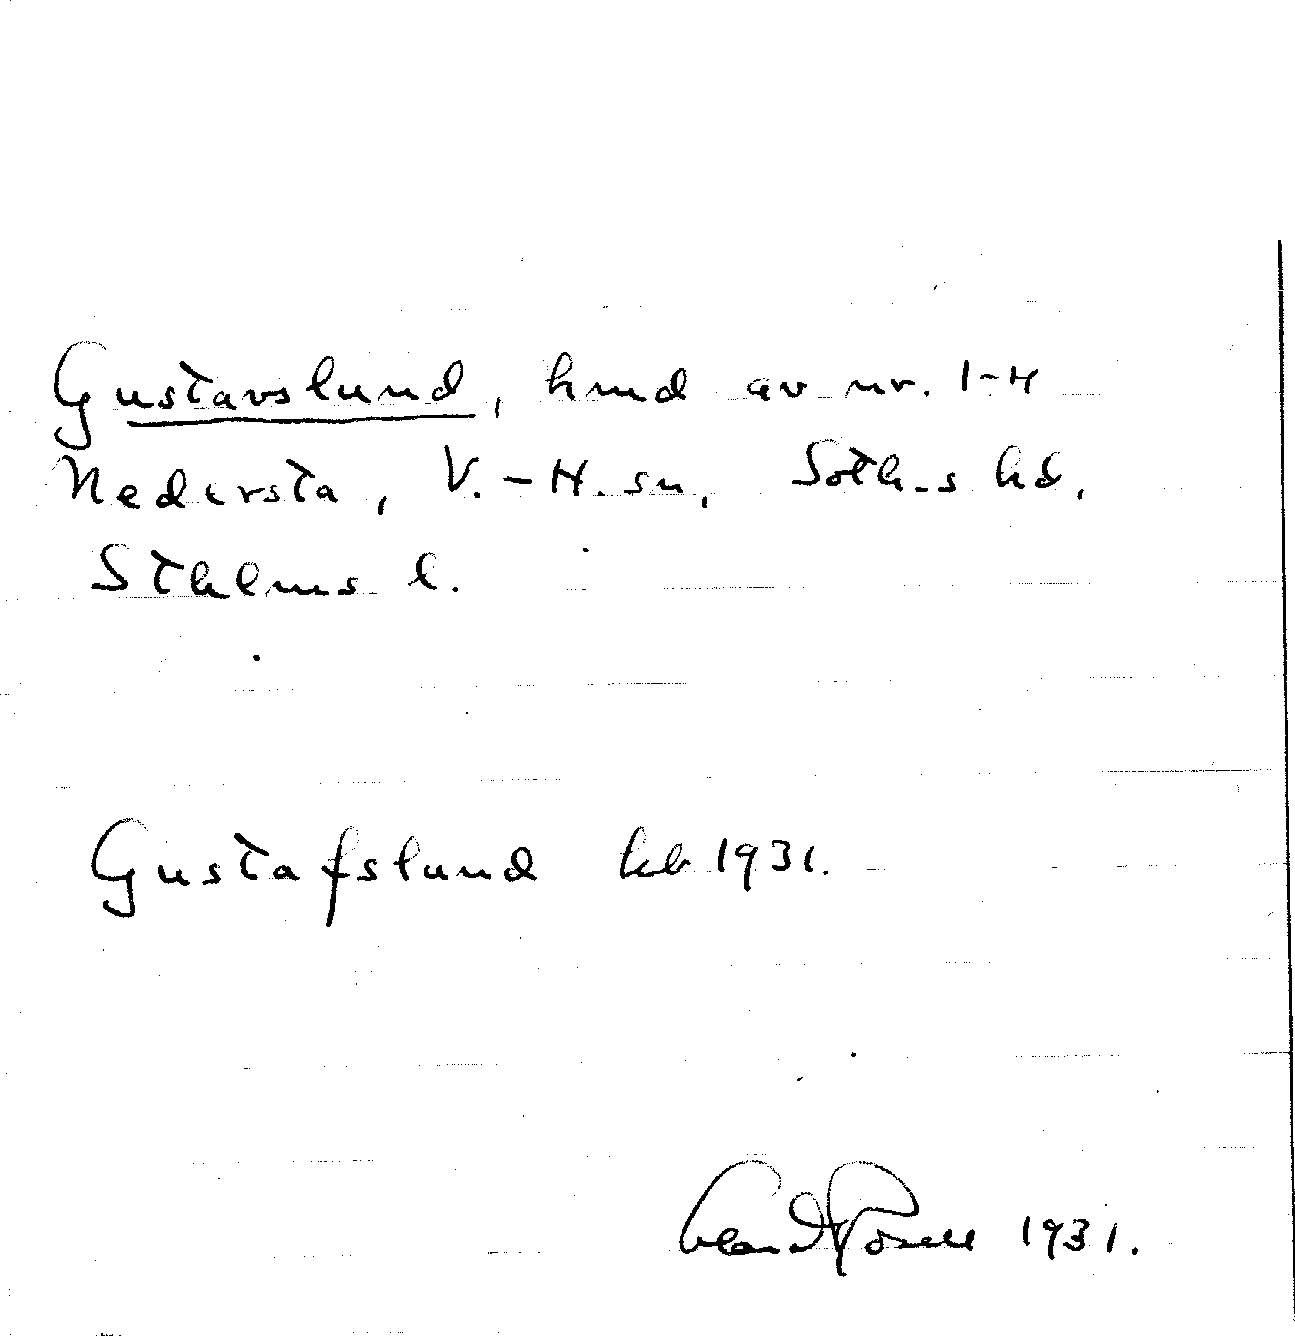 Gustavslund, hmd av nr. 1-4
Nedersta, V.-H. sn, Soth-s hd,
Sthlms l.
Gustafslund kb 1931.
1931.